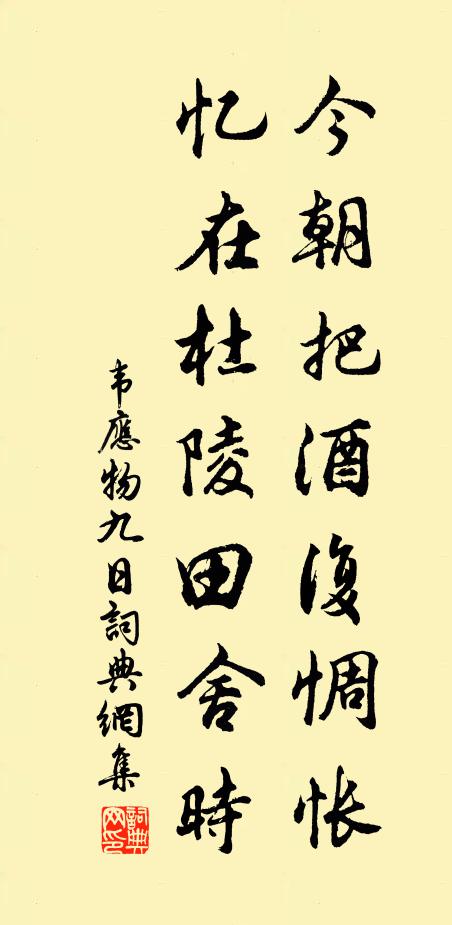 今朝把酒復惆怅
忆在杜陵田舍時
韦應物九日詞典網集
詞典网印